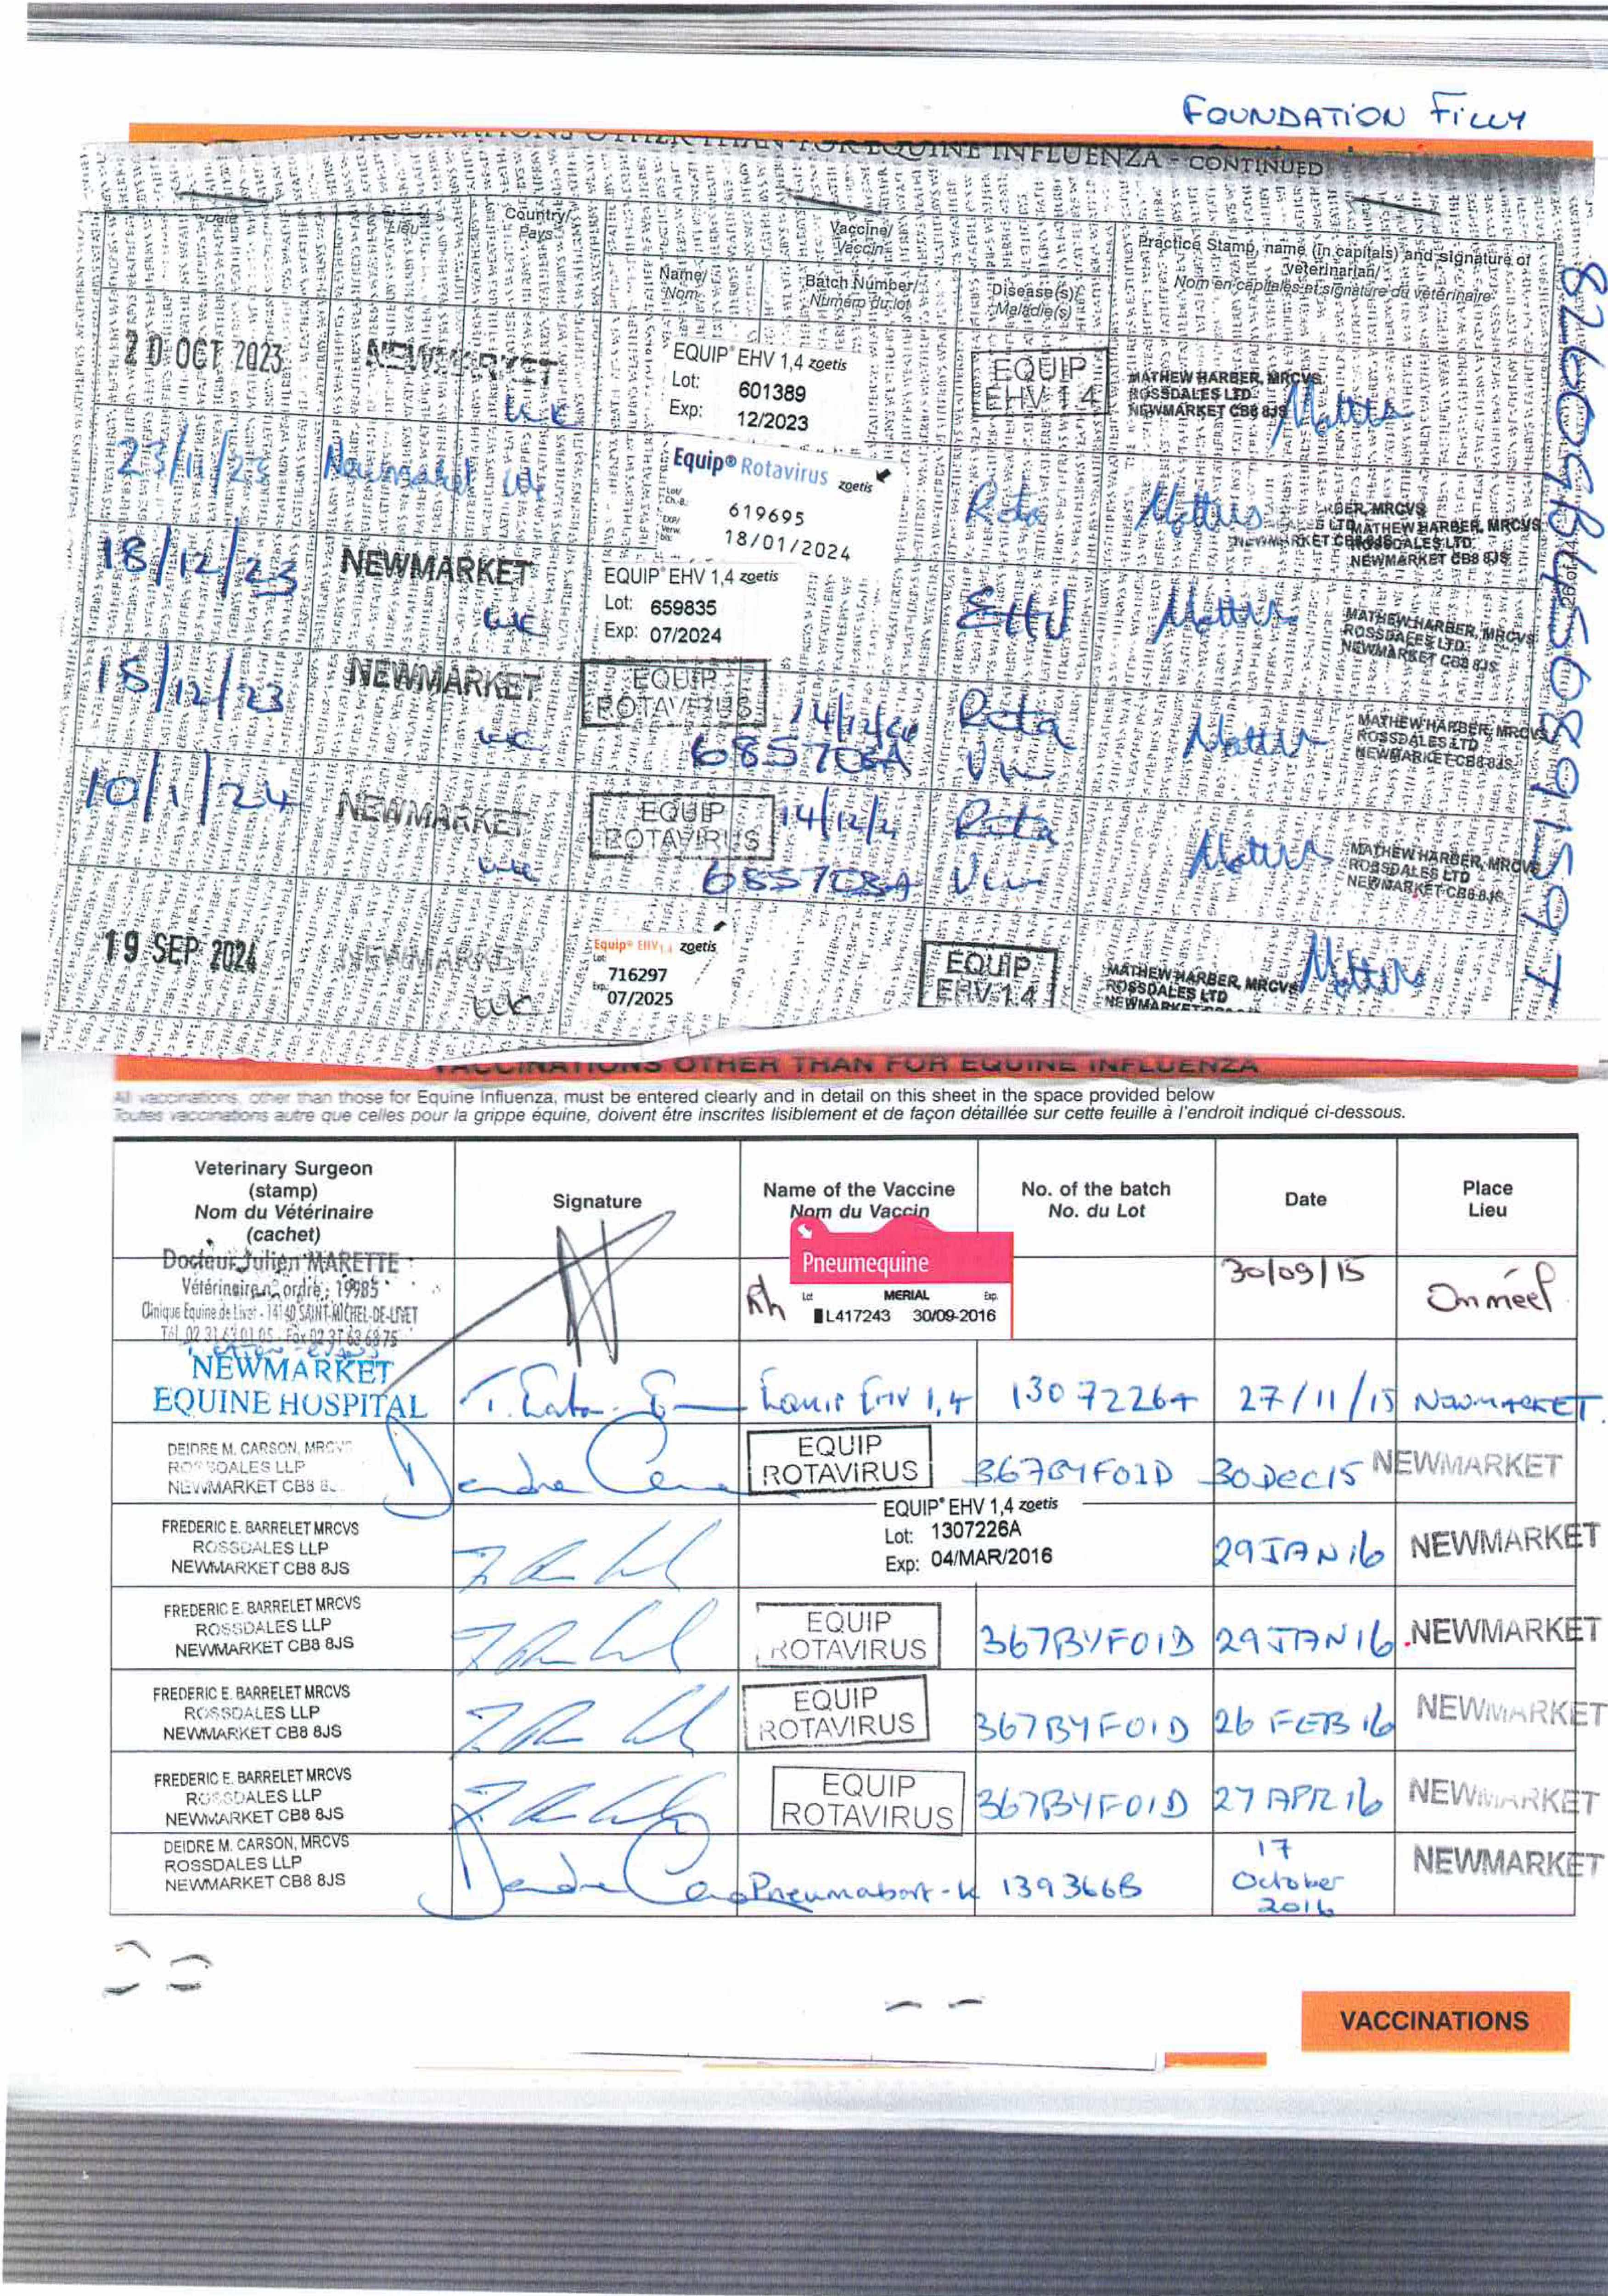 FOUNDATION FILLY
VACCINATIONS OTHER THAN FOR EQUINE INFLUENZA - CONTINUED
Date
Lieu
Country/
Pays
Vaccine/
Vaccin
Practice Stamp, name (in capitals) and signature of
veterinarian/
Nom en capitales et signature du vétérinaire
Name/
Nom
Batch Number/
Numéro du lot
Disease(s)/
Maladie(s)
20 OCT 2023
NEWMARKET
UK
EQUIP® EHV 1,4 zoetis
Lot: 601389
Exp: 12/2023
EQUIP
EHV 1.4
MATHEW HARBER, MRCVS
ROSSDALES LTD
NEWMARKET CB8 8JS
23/11/23
Newmarket UK
Equip® Rotavirus zoetis
Lot/
Ch.-B.:
619695
Exp/
Verw.
bis:
18/01/2024
Rota
BER, MRCVS
S LTD
NEWMARKET CB8 8JS
MATHEW HARBER, MRCVS
ROSSDALES LTD
NEWMARKET CB8 8JS
18/12/23
NEWMARKET
UK
EQUIP® EHV 1,4 zoetis
Lot: 659835
Exp: 07/2024
EHV
MATHEW HARBER, MRCVS
ROSSDALES LTD
NEWMARKET CB8 8JS
15/12/23
NEWMARKET
UK
EQUIP
ROTAVIRUS
685708A
Rota
MATHEW HARBER, MRCVS
ROSSDALES LTD
NEWMARKET CB8 8JS
10/1/24
NEWMARKET
UK
EQUIP
ROTAVIRUS
685708A
Rota
MATHEW HARBER, MRCVS
ROSSDALES LTD
NEWMARKET CB8 8JS
19 SEP 2024
NEWMARKET
UK
Equip® EHV 1,4 zoetis
Lot:
716297
Exp:
07/2025
EQUIP
EHV 1.4
MATHEW HARBER, MRCVS
ROSSDALES LTD
NEWMARKET
VACCINATIONS OTHER THAN FOR EQUINE INFLUENZA
All vaccinations, other than those for Equine Influenza, must be entered clearly and in detail on this sheet in the space provided below
Toutes vaccinations autre que celles pour la grippe équine, doivent être inscrites lisiblement et de façon détaillée sur cette feuille à l'endroit indiqué ci-dessous.
Veterinary Surgeon
(stamp)
Nom du Vétérinaire
(cachet)
Signature
Name of the Vaccine
Nom du Vaccin
No. of the batch
No. du Lot
Date
Place
Lieu
Docteur Julien MARETTE
Vétérinaire n° ordre : 19985
Clinique Equine de Livet - 14140 SAINT-MICHEL-DE-LIVET
Tél. 02 31 63 01 05 - Fax 02 31 63 68 75
Rh
Pneumequine
Lot MERIAL Exp.
L417243 30/09-2016
30/09/15
Ommeel
NEWMARKET
EQUINE HOSPITAL
Equip EHV 1,4
1307226A
27/11/15
NEWMARKET.
DEIDRE M. CARSON, MRCVS
ROSSDALES LLP
NEWMARKET CB8 8JS
EQUIP
ROTAVIRUS
367BYF01D
30 DEC 15
NEWMARKET
FREDERIC E. BARRELET MRCVS
ROSSDALES LLP
NEWMARKET CB8 8JS
EQUIP® EHV 1,4 zoetis
Lot: 1307226A
Exp: 04/MAR/2016
29 JAN 16
NEWMARKET
FREDERIC E. BARRELET MRCVS
ROSSDALES LLP
NEWMARKET CB8 8JS
EQUIP
ROTAVIRUS
367BYF01D
29 JAN 16
NEWMARKET
FREDERIC E. BARRELET MRCVS
ROSSDALES LLP
NEWMARKET CB8 8JS
EQUIP
ROTAVIRUS
367BYF01D
26 FEB 16
NEWMARKET
FREDERIC E. BARRELET MRCVS
ROSSDALES LLP
NEWMARKET CB8 8JS
EQUIP
ROTAVIRUS
367BYF01D
27 APR 16
NEWMARKET
DEIDRE M. CARSON, MRCVS
ROSSDALES LLP
NEWMARKET CB8 8JS
Pneumabort-K
139366B
17
October
2016
NEWMARKET
VACCINATIONS